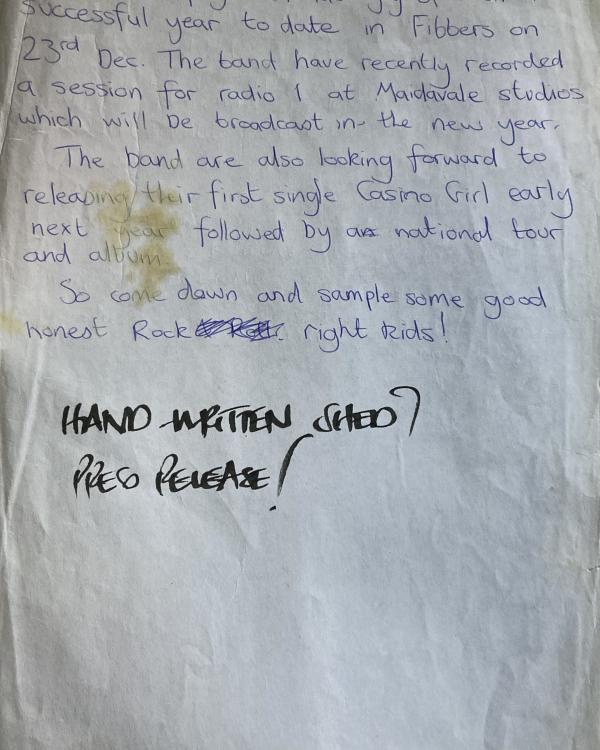 successful year to date in Fibbers on
23rd Dec. The band have recently recorded
a session for radio 1 at Maidavale studios
which will be broadcast in the new year.
The band are also looking forward to
releasing their first single Casino Girl early
next year followed by a national tour
and album.
So come down and sample some good
honest Rock right kids!
HAND WRITTEN SHED 7
PRESS RELEASE!